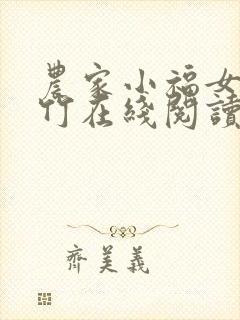 農家小福女
竹在綫閱讀
齊美義